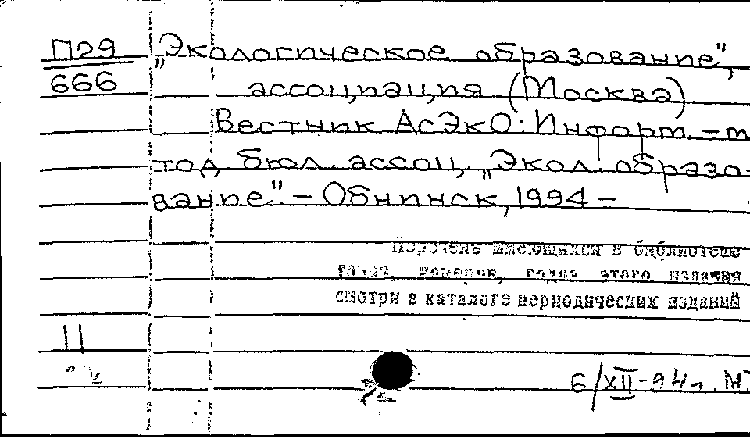 П29 „Экологическое образование",
666 ассоциация (Москва)
Вестник АсЭкО: Информ.-ме
тод бюл. ассоц. „Экол. образо-
вание". – Обнинск, 1994 –
Перечень имеющихся в библиотеке
томов, номеров, годов этого издания
смотри в каталоге периодических изданий
11
6/XII-94г. М